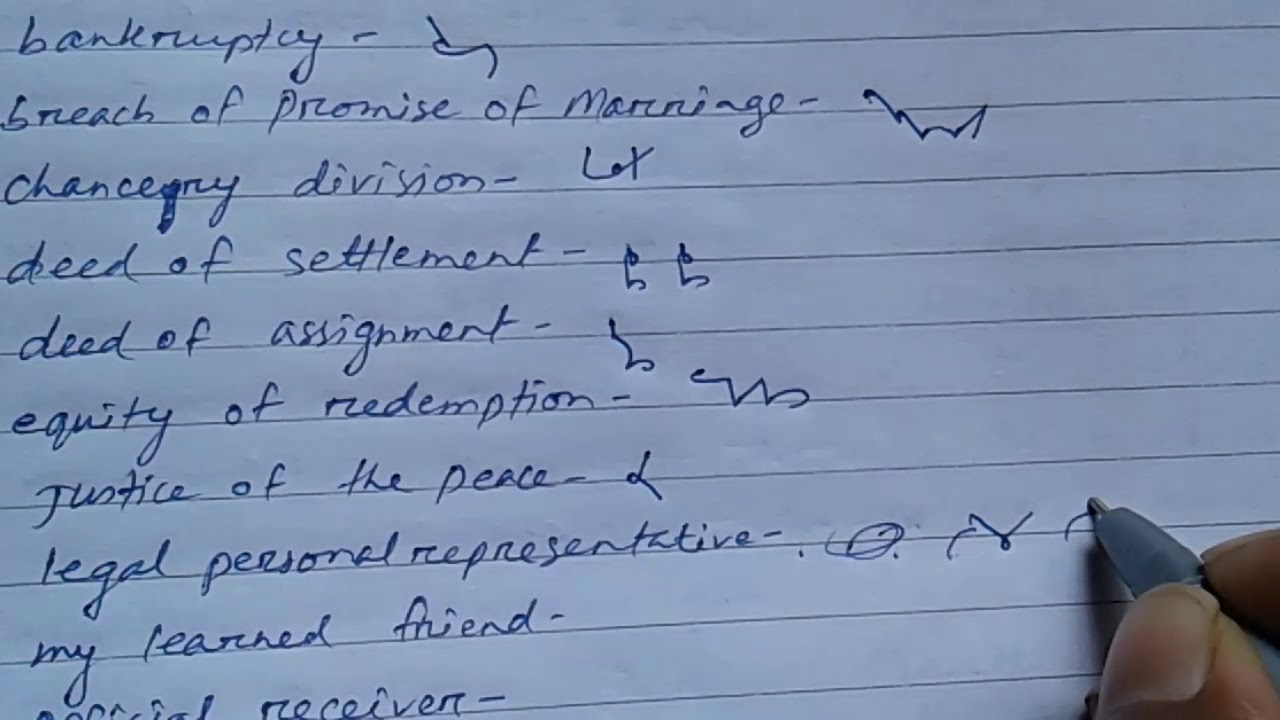 bankruptcy -
breach of promise of Marriage -
chancery division -
deed of settlement -
deed of assignment -
equity of redemption -
Justice of the peace -
legal personal representative -
my learned friend -
official receiver -